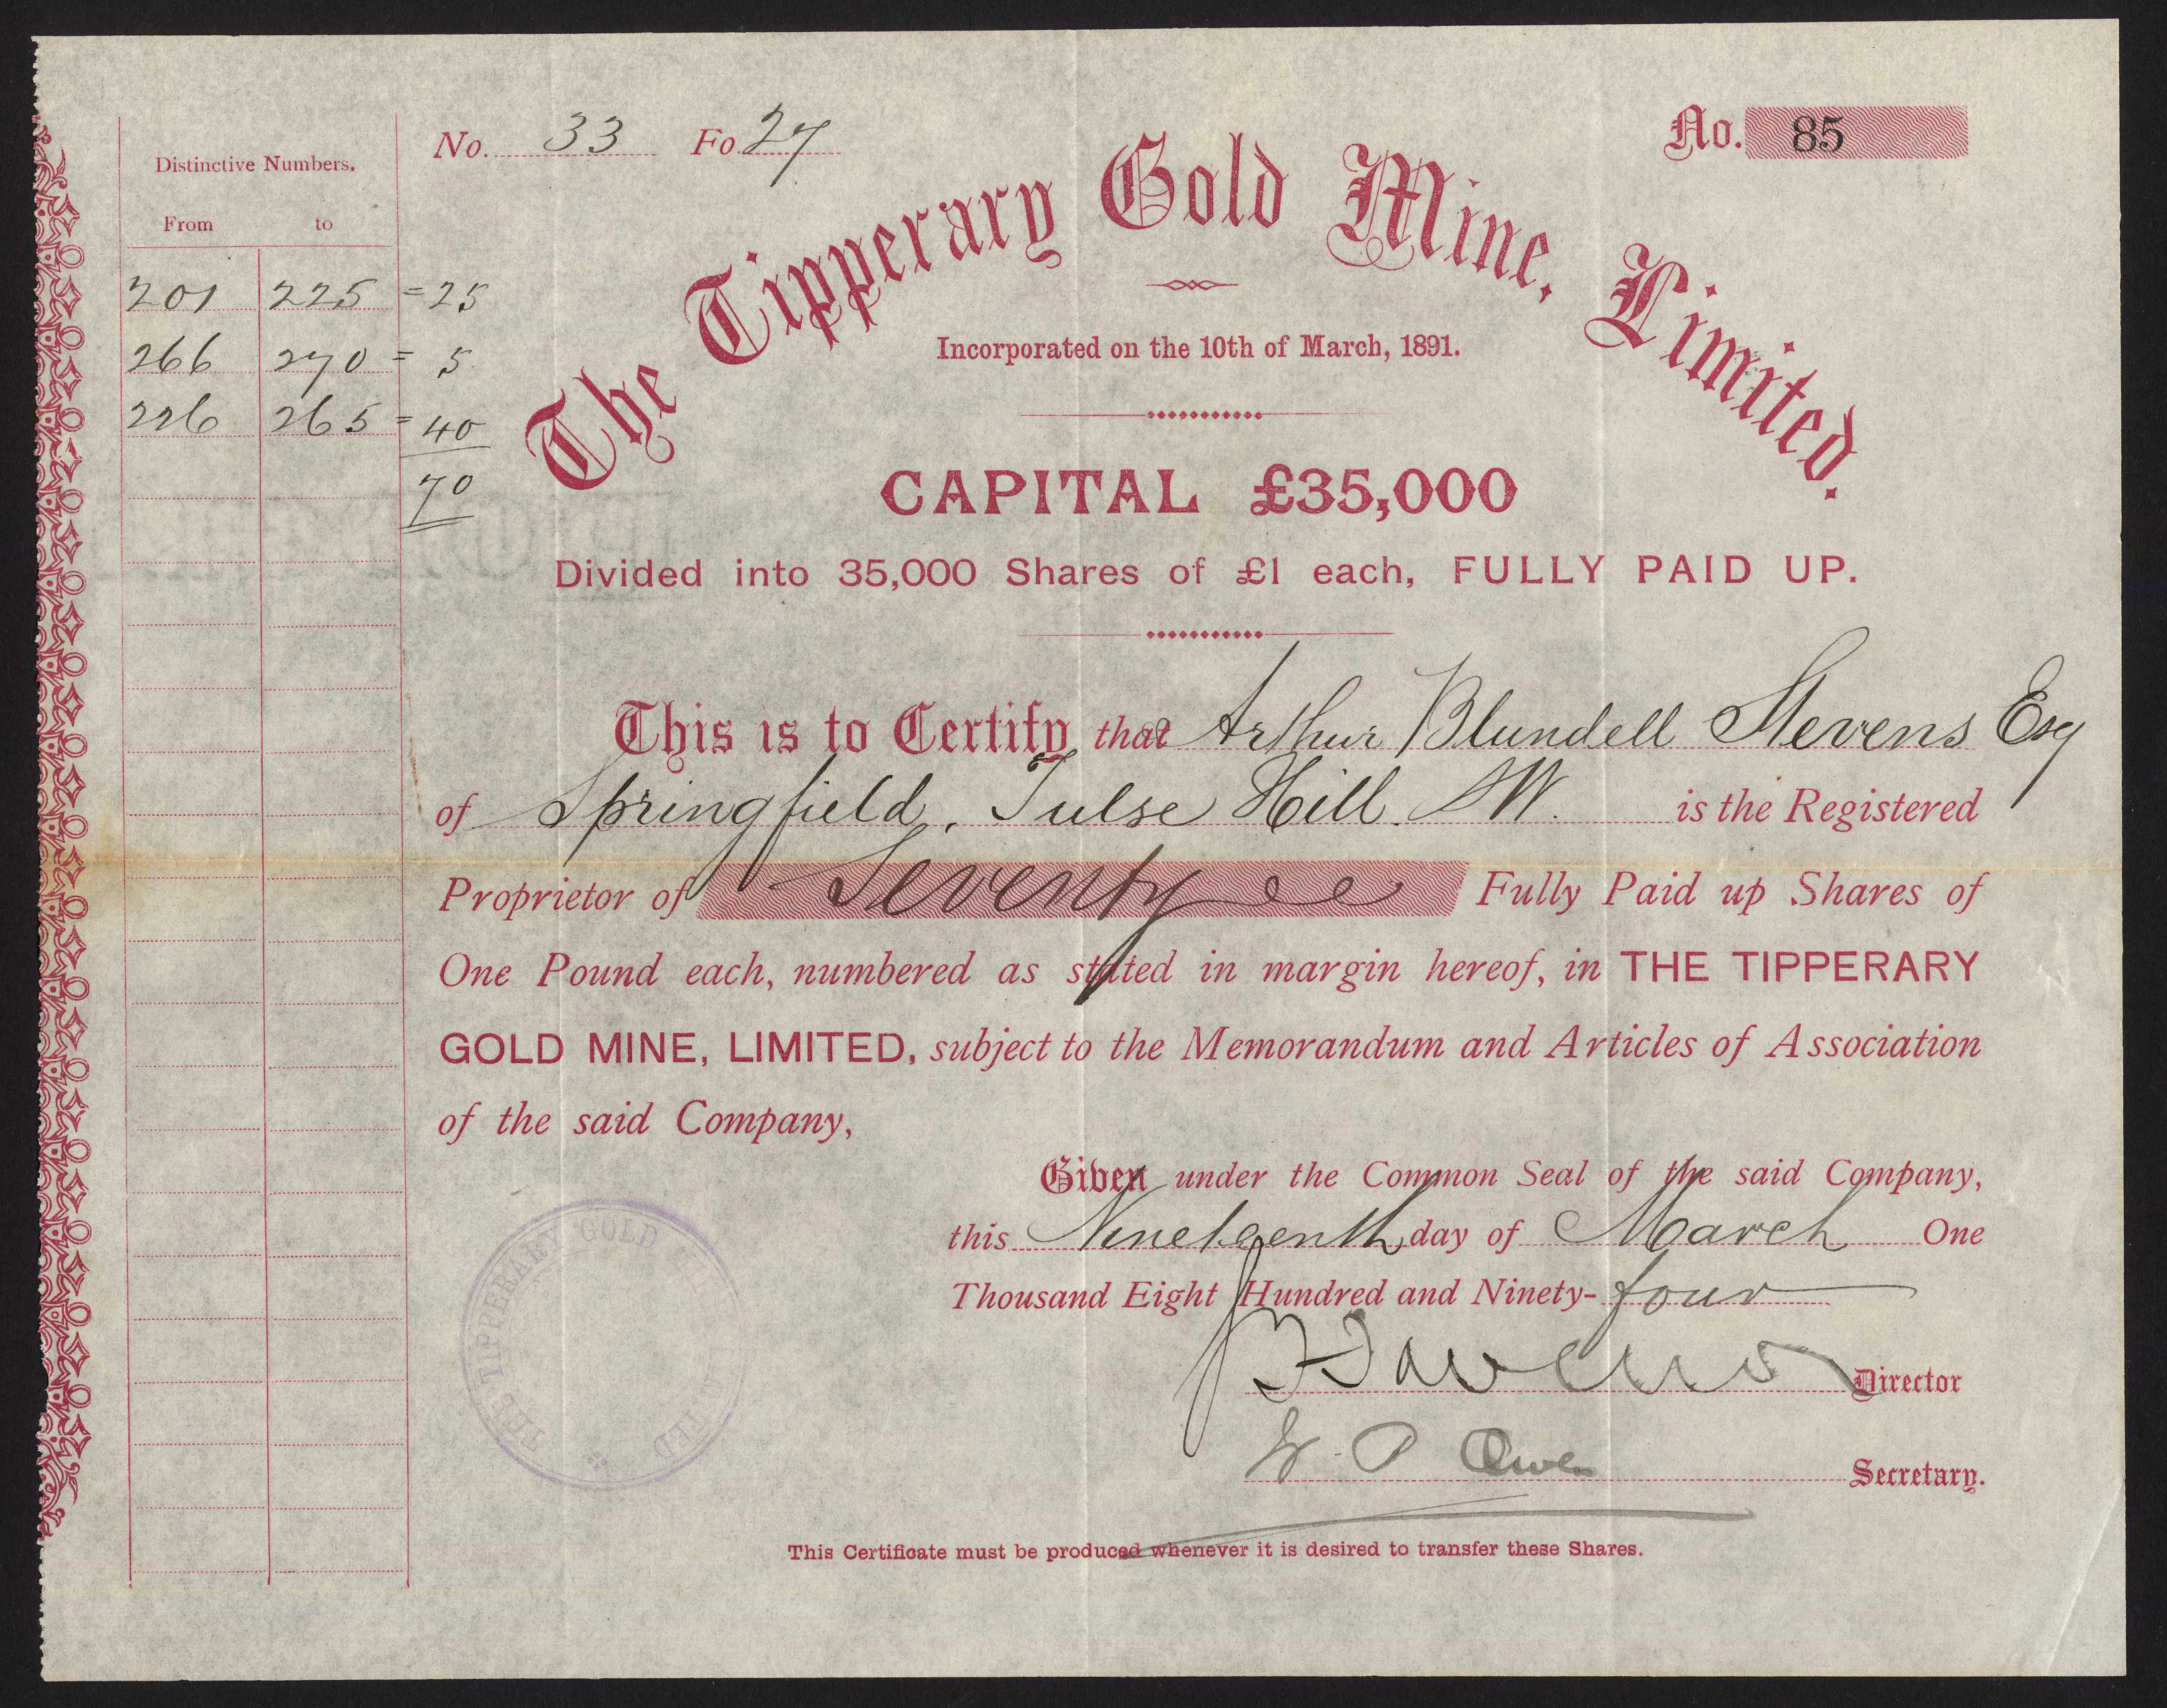 No. 33 Fo. 27
No. 85
Distinctive Numbers.
From to
201 225 = 25
266 270 = 5
226 265 = 40
70
The Tipperary Gold Mine, Limited.
Incorporated on the 10th of March, 1891.
CAPITAL £35,000
Divided into 35,000 Shares of £1 each, FULLY PAID UP.
This is to Certify that Arthur Blundell Stevens Esq
of Springfield, Tulse Hill. SW. is the Registered
Proprietor of Seventy Fully Paid up Shares of
One Pound each, numbered as stated in margin hereof, in THE TIPPERARY
GOLD MINE, LIMITED, subject to the Memorandum and Articles of Association
of the said Company,
Given under the Common Seal of the said Company,
this Nineteenth day of March One
Thousand Eight Hundred and Ninety-four
Director
P Owen
Secretary.
THE TIPPERARY GOLD
This Certificate must be produced whenever it is desired to transfer these Shares.